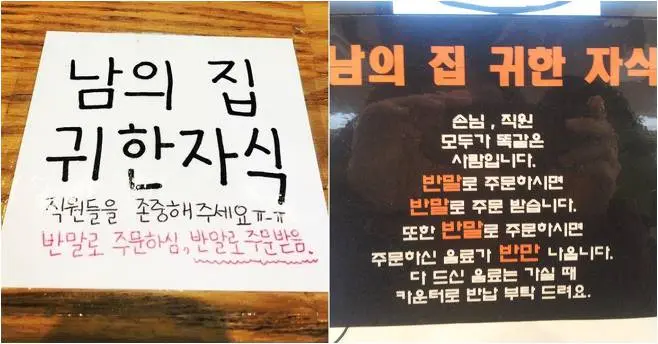 남의 집
귀한자식
직원들을 존중해주세요ㅠ-ㅠ
반말로 주문하심, 반말로 주문받음.
남의 집 귀한 자식
손님, 직원
모두가 똑같은
사람입니다.
반말로 주문하시면
반말로 주문 받습니다.
또한 반말로 주문하시면
주문하신 음료가 반만 나옵니다.
다 드신 음료는 가실 때
카운터로 반납 부탁 드려요.